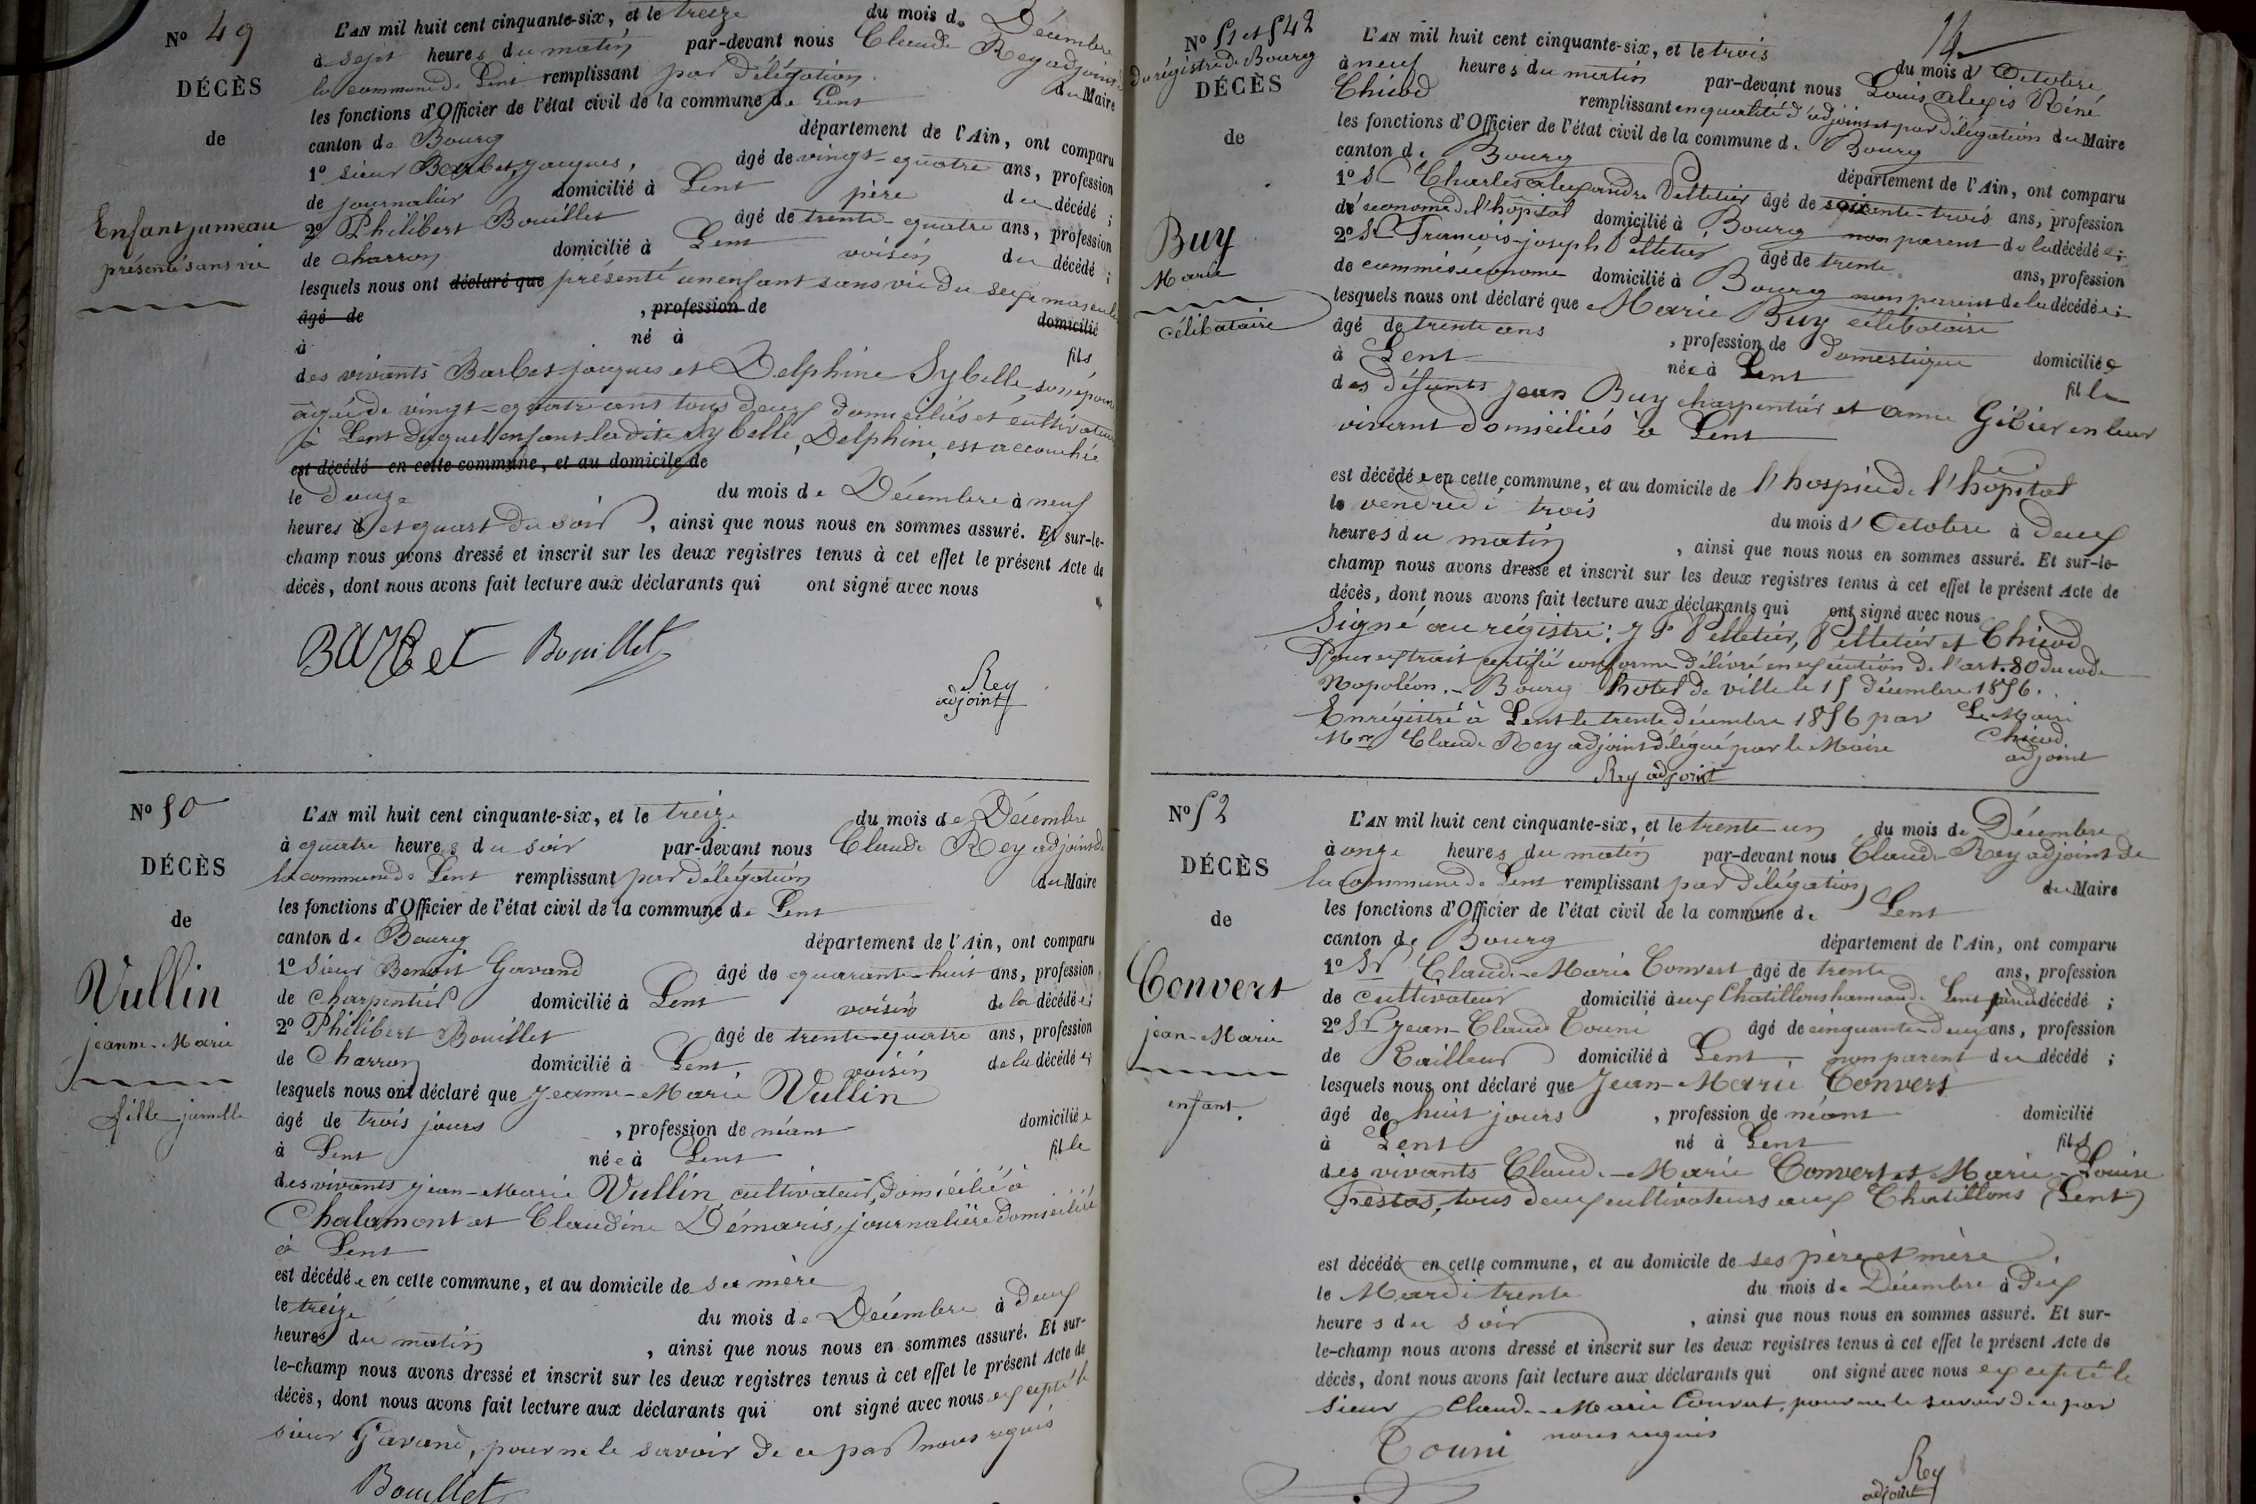 N° 49
DÉCÈS
de
Enfant jumeau
présenté sans vie
L'AN mil huit cent cinquante-six, et le treize du mois de Décembre
à sept heures du matin par-devant nous Claude Rey adjoint de
la commune de Lent remplissant par délégation du Maire
les fonctions d'Officier de l'état civil de la commune de Lent
canton de Bourg département de l'Ain, ont comparu
1° sieur Barbet Jacques, âgé de vingt-quatre ans, profession
de journalier domicilié à Lent père du décédé ;
2° Philibert Bouillet âgé de trente-quatre ans, profession
de charron domicilié à Lent voisin du décédé ;
lesquels nous ont déclaré que présenté un enfant sans vie du sexe masculin
âgé de , profession de domicilié
à né à fils
des vivants Barbet jacques et Delphine Sybelle, son épouse
âgée de vingt-quatre ans tous deux domiciliés et cultivateurs
à Lent duquel enfant ladite Sybelle, Delphine, est accouchée
est décédé en cette commune, et au domicile de
le douze du mois de Décembre à neuf
heures et quart du soir, ainsi que nous nous en sommes assuré. Et sur-le-
champ nous avons dressé et inscrit sur les deux registres tenus à cet effet le présent Acte de
décès, dont nous avons fait lecture aux déclarants qui ont signé avec nous
Barbet Bouillet
Rey
adjoint
N° 50
DÉCÈS
de
Vullin
jeanne-Marie
fille jumelle
L'AN mil huit cent cinquante-six, et le treize du mois de Décembre
à quatre heures du soir par-devant nous Claude Rey adjoint de
la commune de Lent remplissant par délégation du Maire
les fonctions d'Officier de l'état civil de la commune de Lent
canton de Bourg département de l'Ain, ont comparu
1° sieur Benoit Gavand âgé de quarante-huit ans, profession
de charpentier domicilié à Lent voisin de la décédée ;
2° Philibert Bouillet âgé de trente-quatre ans, profession
de Charron domicilié à Lent voisin de la décédée ;
lesquels nous ont déclaré que Jeanne-Marie Vullin
âgé de trois jours , profession de néant domiciliée
à Lent née à Lent fille
des vivants jean-Marie Vullin cultivateur, domicilié à
Chalamont et Claudine Démaris, journalière domiciliée
à Lent
est décédée en cette commune, et au domicile de sa mère
le treize du mois de Décembre à deux
heures du matin , ainsi que nous nous en sommes assuré. Et sur-
le-champ nous avons dressé et inscrit sur les deux registres tenus à cet effet le présent Acte de
décès, dont nous avons fait lecture aux déclarants qui ont signé avec nous excepté le
sieur Gavand, pour ne le savoir de ce par nous requis
Bouillet
14
N° 51 et 542
du régistre de Bourg
DÉCÈS
de
Buy
Marie
célibataire
L'AN mil huit cent cinquante-six, et le trois du mois d'Octobre,
à neuf heures du matin par-devant nous Louis Alexis Réné
Chicod remplissant en qualité d'adjoint et par délégation du Maire
les fonctions d'Officier de l'état civil de la commune de Bourg
canton de Bourg département de l'Ain, ont comparu
1° Sr Charles Alexandre Pelletier âgé de soixante-trois ans, profession
d'économe de l'hôpital domicilié à Bourg non parent de la décédée ;
2° Sr François-joseph Pelletier âgé de trente ans, profession
de commis économe domicilié à Bourg non parent de la décédée ;
lesquels nous ont déclaré que Marie Buy célibataire
âgé de trente ans , profession de domestique domiciliée
à Lent née à Lent fille
des défunts jean Buy charpentier et Anne Gibier en leur
vivant domiciliés à Lent
est décédée en cette commune, et au domicile de l'hospice de l'hôpital
le vendredi trois du mois d'Octobre à deux
heures du matin , ainsi que nous nous en sommes assuré. Et sur-le-
champ nous avons dressé et inscrit sur les deux registres tenus à cet effet le présent Acte de
décès, dont nous avons fait lecture aux déclarants qui ont signé avec nous
Signé au régistre : Pelletier, Pelletier et Chicod
Pour extrait certifié conforme délivré en exécution de l'art. 80 du code
Napoléon. - Bourg hotel de ville le 15 Décembre 1856.
Enrégistré à Lent le trente décembre 1856 par Le Maire
Mr Claude Rey adjoint délégué par le Maire Chicod
adjoint
Rey adjoint
N° 52
DÉCÈS
de
Convert
jean-Marie
enfant.
L'AN mil huit cent cinquante-six, et le trente-un du mois de Décembre
à onze heures du matin par-devant nous Claude Rey adjoint de
la Commune de Lent remplissant par délégation du Maire
les fonctions d'Officier de l'état civil de la commune de Lent
canton de Bourg département de l'Ain, ont comparu
1° Sr Claude-Marie Convert âgé de trente ans, profession
de cultivateur domicilié aux Chatillons hameau de Lent père du décédé ;
2° Sr Jean-Claude Touni âgé de cinquante-deux ans, profession
de Tailleur domicilié à Lent non parent du décédé ;
lesquels nous ont déclaré que Jean-Marie Convert
âgé de huit jours , profession de néant domicilié
à Lent né à Lent fils
des vivants Claude-Marie Convert et Marie-Louise
Trestas, tous deux cultivateurs aux Chatillons (Lent)
est décédé en cette commune, et au domicile de ses père et mère.
le Mardi trente du mois de Décembre à dix
heures du soir , ainsi que nous nous en sommes assuré. Et sur-
le-champ nous avons dressé et inscrit sur les deux registres tenus à cet effet le présent Acte de
décès, dont nous avons fait lecture aux déclarants qui ont signé avec nous excepté le
sieur Claude-Marie Convert, pour ne le savoir de ce par
nous requis
Touni
Rey
adjoint